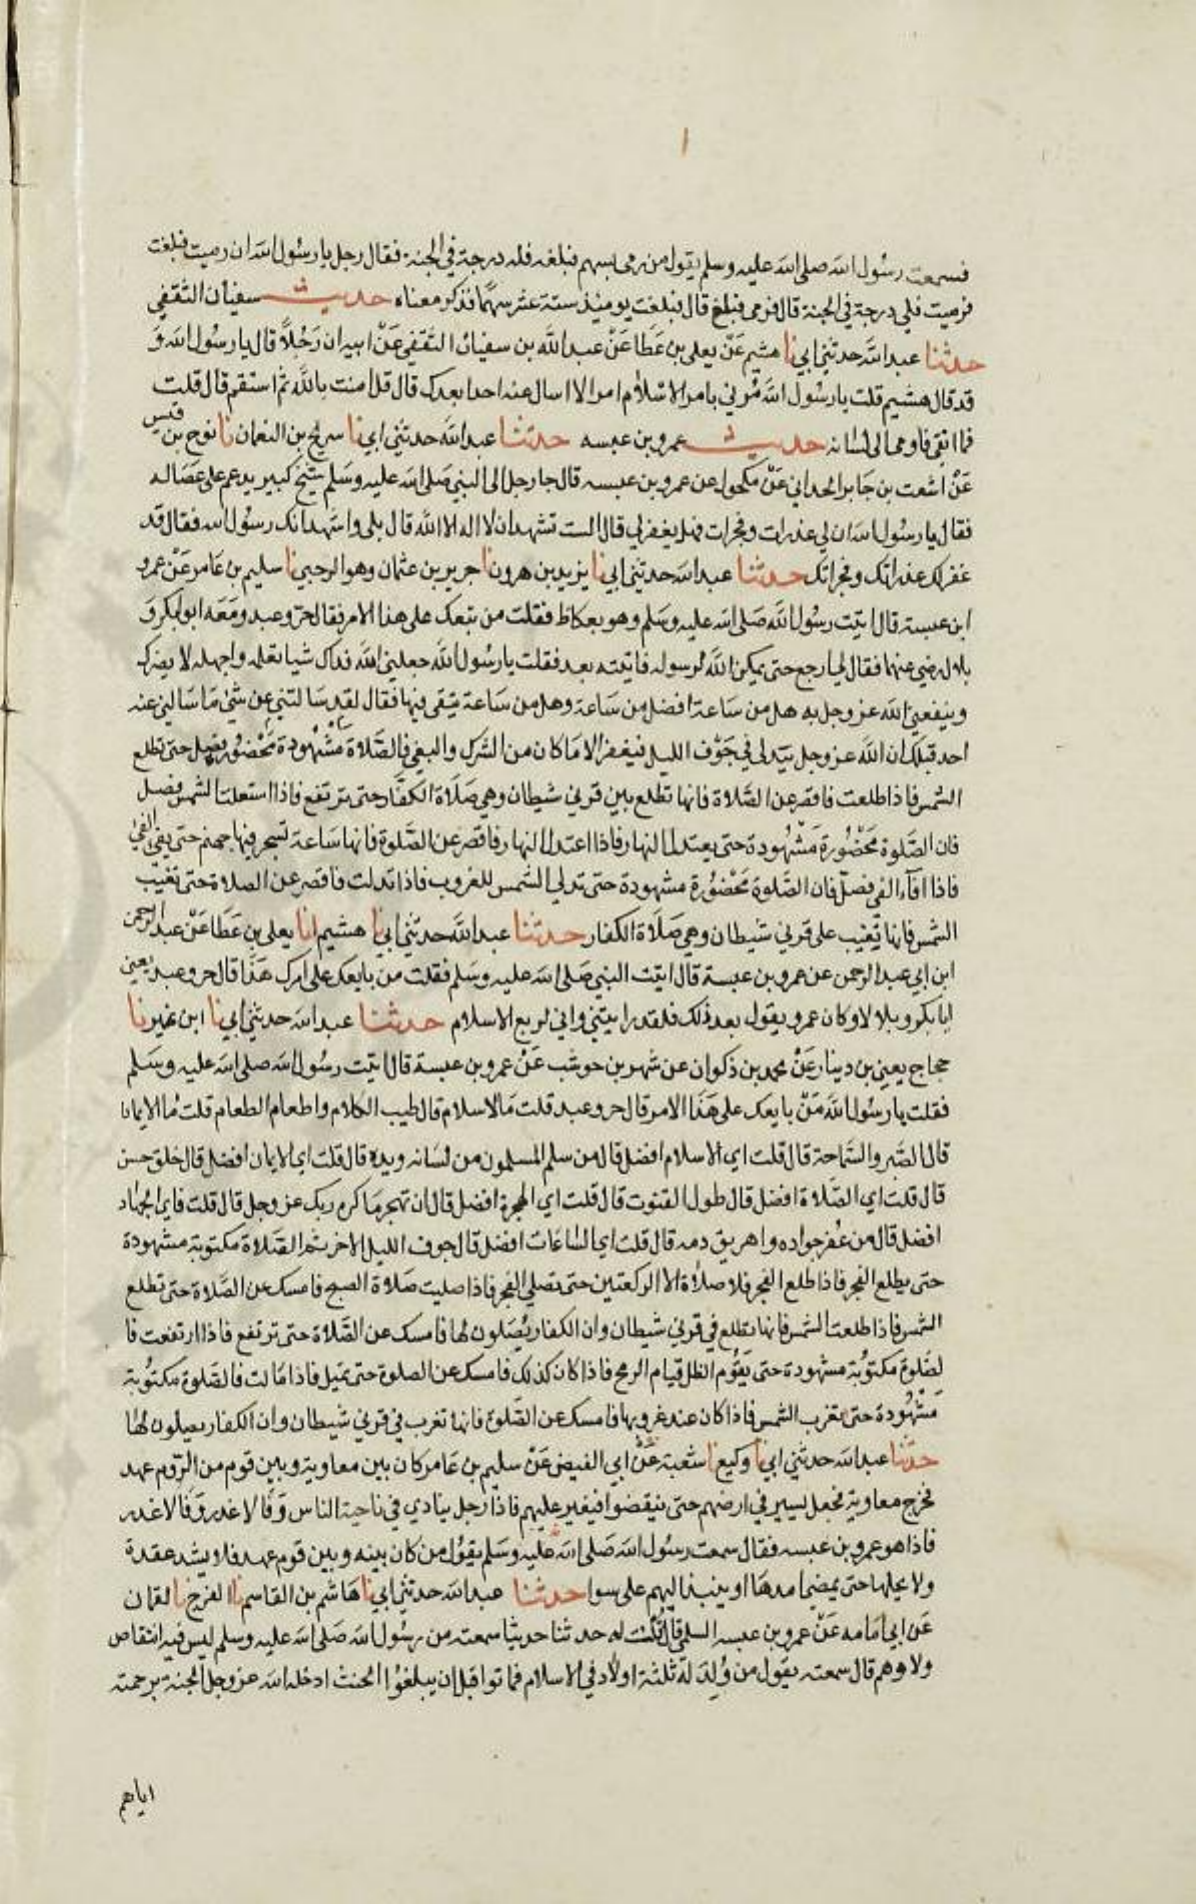 فسمعت رسول الله صلى الله عليه وسلم يقول من رمى بسهم فبلغه فله درجة في الجنة فقال رجل يا رسول الله ان رميت فبلغت
فرميت فلي درجة في الجنة قال فرمى فبلغ قال فبلغت يومئذ ستة عشر سهما فذكر معناه حديث سفيان الثقفي
حدثنا عبد الله حدثني ابي نا هشيم عن يعلى بن عطا عن عبد الله بن سفيان الثقفي عن ابيه ان رجلا قال يا رسول الله و
قد قال هشيم قلت يا رسول الله مرني بامر الاسلام امر الا اسال عنه احدا بعدك قال قل امنت بالله ثم استقم قال قلت
فما اتقي فاومى الى لسانه حديث عمرو بن عبسه حدثنا عبد الله حدثني ابي نا سريج بن النعمان نا نوح بن قيس
عن اشعت بن جابر الحداني عن مكحول عن عمرو بن عبسه قال جا رجل الى النبي صلى الله عليه وسلم شيخ كبير يدعم على عصا له
فقال يا رسول الله ان لي غدرات وفجرات فهل يغفر لي قال الست تشهد ان لا اله الا الله قال بلى واشهد انك رسول الله فقال قد
غفر لك غدراتك وفجراتك حدثنا عبد الله حدثني ابي نا يزيد بن هرون نا جرير بن عثمان وهو الرحبي نا سليم بن عامر عن عمرو
ابن عبسة قال اتيت رسول الله صلى الله عليه وسلم وهو بعكاظ فقلت من تبعك على هذا الامر فقال حر وعبد ومعه ابو بكر و
بلال رضي عنهما فقال لي ارجع حتى يمكن الله لرسوله فاتيته بعد فقلت يا رسول الله جعلني الله فداك شيا تعلمه واجهله لا يضرك
وينفعني الله عز وجل به هل من ساعة افضل من ساعة وهل من ساعة يتقى فيها فقال لقد سالتني عن شي ما سالني عنه
احد قبلك ان الله عز وجل يتدلى في جوف الليل فيغفر الا ما كان من الشرك والبغي فالصلاة مشهودة محضورة فصل حتى تطلع
الشمس فاذا طلعت فاقصر عن الصلاة فانها تطلع بين قرني شيطان وهي صلاة الكفار حتى ترتفع فاذا استعلت الشمس فصل
فان الصلوة محضورة مشهودة حتى يعتدل النهار فاذا اعتدل النهار فاقصر عن الصلوة فانها ساعة تسجر فيها جهنم حتى يفي الفي
فاذا افآء الفي فصل فان الصلوة محضورة مشهودة حتى تدلى الشمس للغروب فاذا تدلت فاقصر عن الصلاة حتى تغيب
الشمس فانها تغيب على قرني شيطان وهي صلاة الكفار حدثنا عبد الله حدثني ابي نا هشيم انا يعلى بن عطا عن عبد الرحمن
ابن ابي عبد الرحمن عن عمرو بن عبسة قال اتيت النبي صلى الله عليه وسلم فقلت من بايعك على امرك هذا قال حر وعبد يعني
ابا بكر وبلالا وكان عمرو يقول بعد ذلك فلقد رايتني واني لربع الاسلام حدثنا عبد الله حدثني ابي نا ابن نمير نا
حجاج يعني بن دينار عن محمد بن ذكوان عن شهر بن حوشب عن عمرو بن عبسة قال اتيت رسول الله صلى الله عليه وسلم
فقلت يا رسول الله من بايعك على هذا الامر قال حر وعبد قلت ما الاسلام قال طيب الكلام واطعام الطعام قلت ما الايمان
قال الصبر والسماحة قال قلت اي الاسلام افضل قال من سلم المسلمون من لسانه ويده قال قلت اي الايمان افضل قال خلق حسن
قال قلت اي الصلاة افضل قال طول القنوت قال قلت اي الهجرة افضل قال ان تهجر ما كره ربك عز وجل قال قلت فاي الجهاد
افضل قال من عقر جواده واهريق دمه قال قلت اي الساعات افضل قال جوف الليل الاخر ثم الصلاة مكتوبة مشهودة
حتى يطلع الفجر فاذا طلع الفجر فلا صلاة الا الركعتين حتى تصلي الفجر فاذا صليت صلاة الصبح فامسك عن الصلاة حتى تطلع
الشمس فاذا طلعت الشمس فانها تطلع في قرني شيطان وان الكفار يصلون لها فامسك عن الصلاة حتى ترتفع فاذا ارتفعت فا
لصلوة مكتوبة مشهودة حتى يقوم الظل قيام الرمح فاذا كان كذلك فامسك عن الصلوة حتى تميل فاذا مالت فالصلوة مكتوبة
مشهودة حتى تغرب الشمس فاذا كان عند غروبها فامسك عن الصلوة فانها تغرب في قرني شيطان وان الكفار يصلون لها
حدثنا عبد الله حدثني ابي نا وكيع نا شعبة عن ابي الفيض عن سليم بن عامر كان بين معاوية وبين قوم من الروم عهد
فخرج معاوية فجعل يسير في ارضهم حتى ينقضوا فيغير عليهم فاذا رجل ينادي في ناحية الناس وفا لا غدر وفا لا غدر
فاذا هو عمرو بن عبسه فقال سمعت رسول الله صلى الله عليه وسلم يقول من كان بينه وبين قوم عهد فلا يشد عقدة
ولا يحلها حتى يمضي امدها او ينبذ اليهم على سوا حدثنا عبد الله حدثني ابي نا هاشم بن القاسم نا الفرج نا لقمان
عن ابي امامه عن عمرو بن عبسه السلمي قال قلت له حدثنا حديثا سمعته من رسول الله صلى الله عليه وسلم ليس فيه انتقاص
ولا وهم قال سمعته يقول من ولد له ثلثة اولاد في الاسلام فماتوا قبل ان يبلغوا الحنث ادخله الله عز وجل الجنة برحمته
اياهم